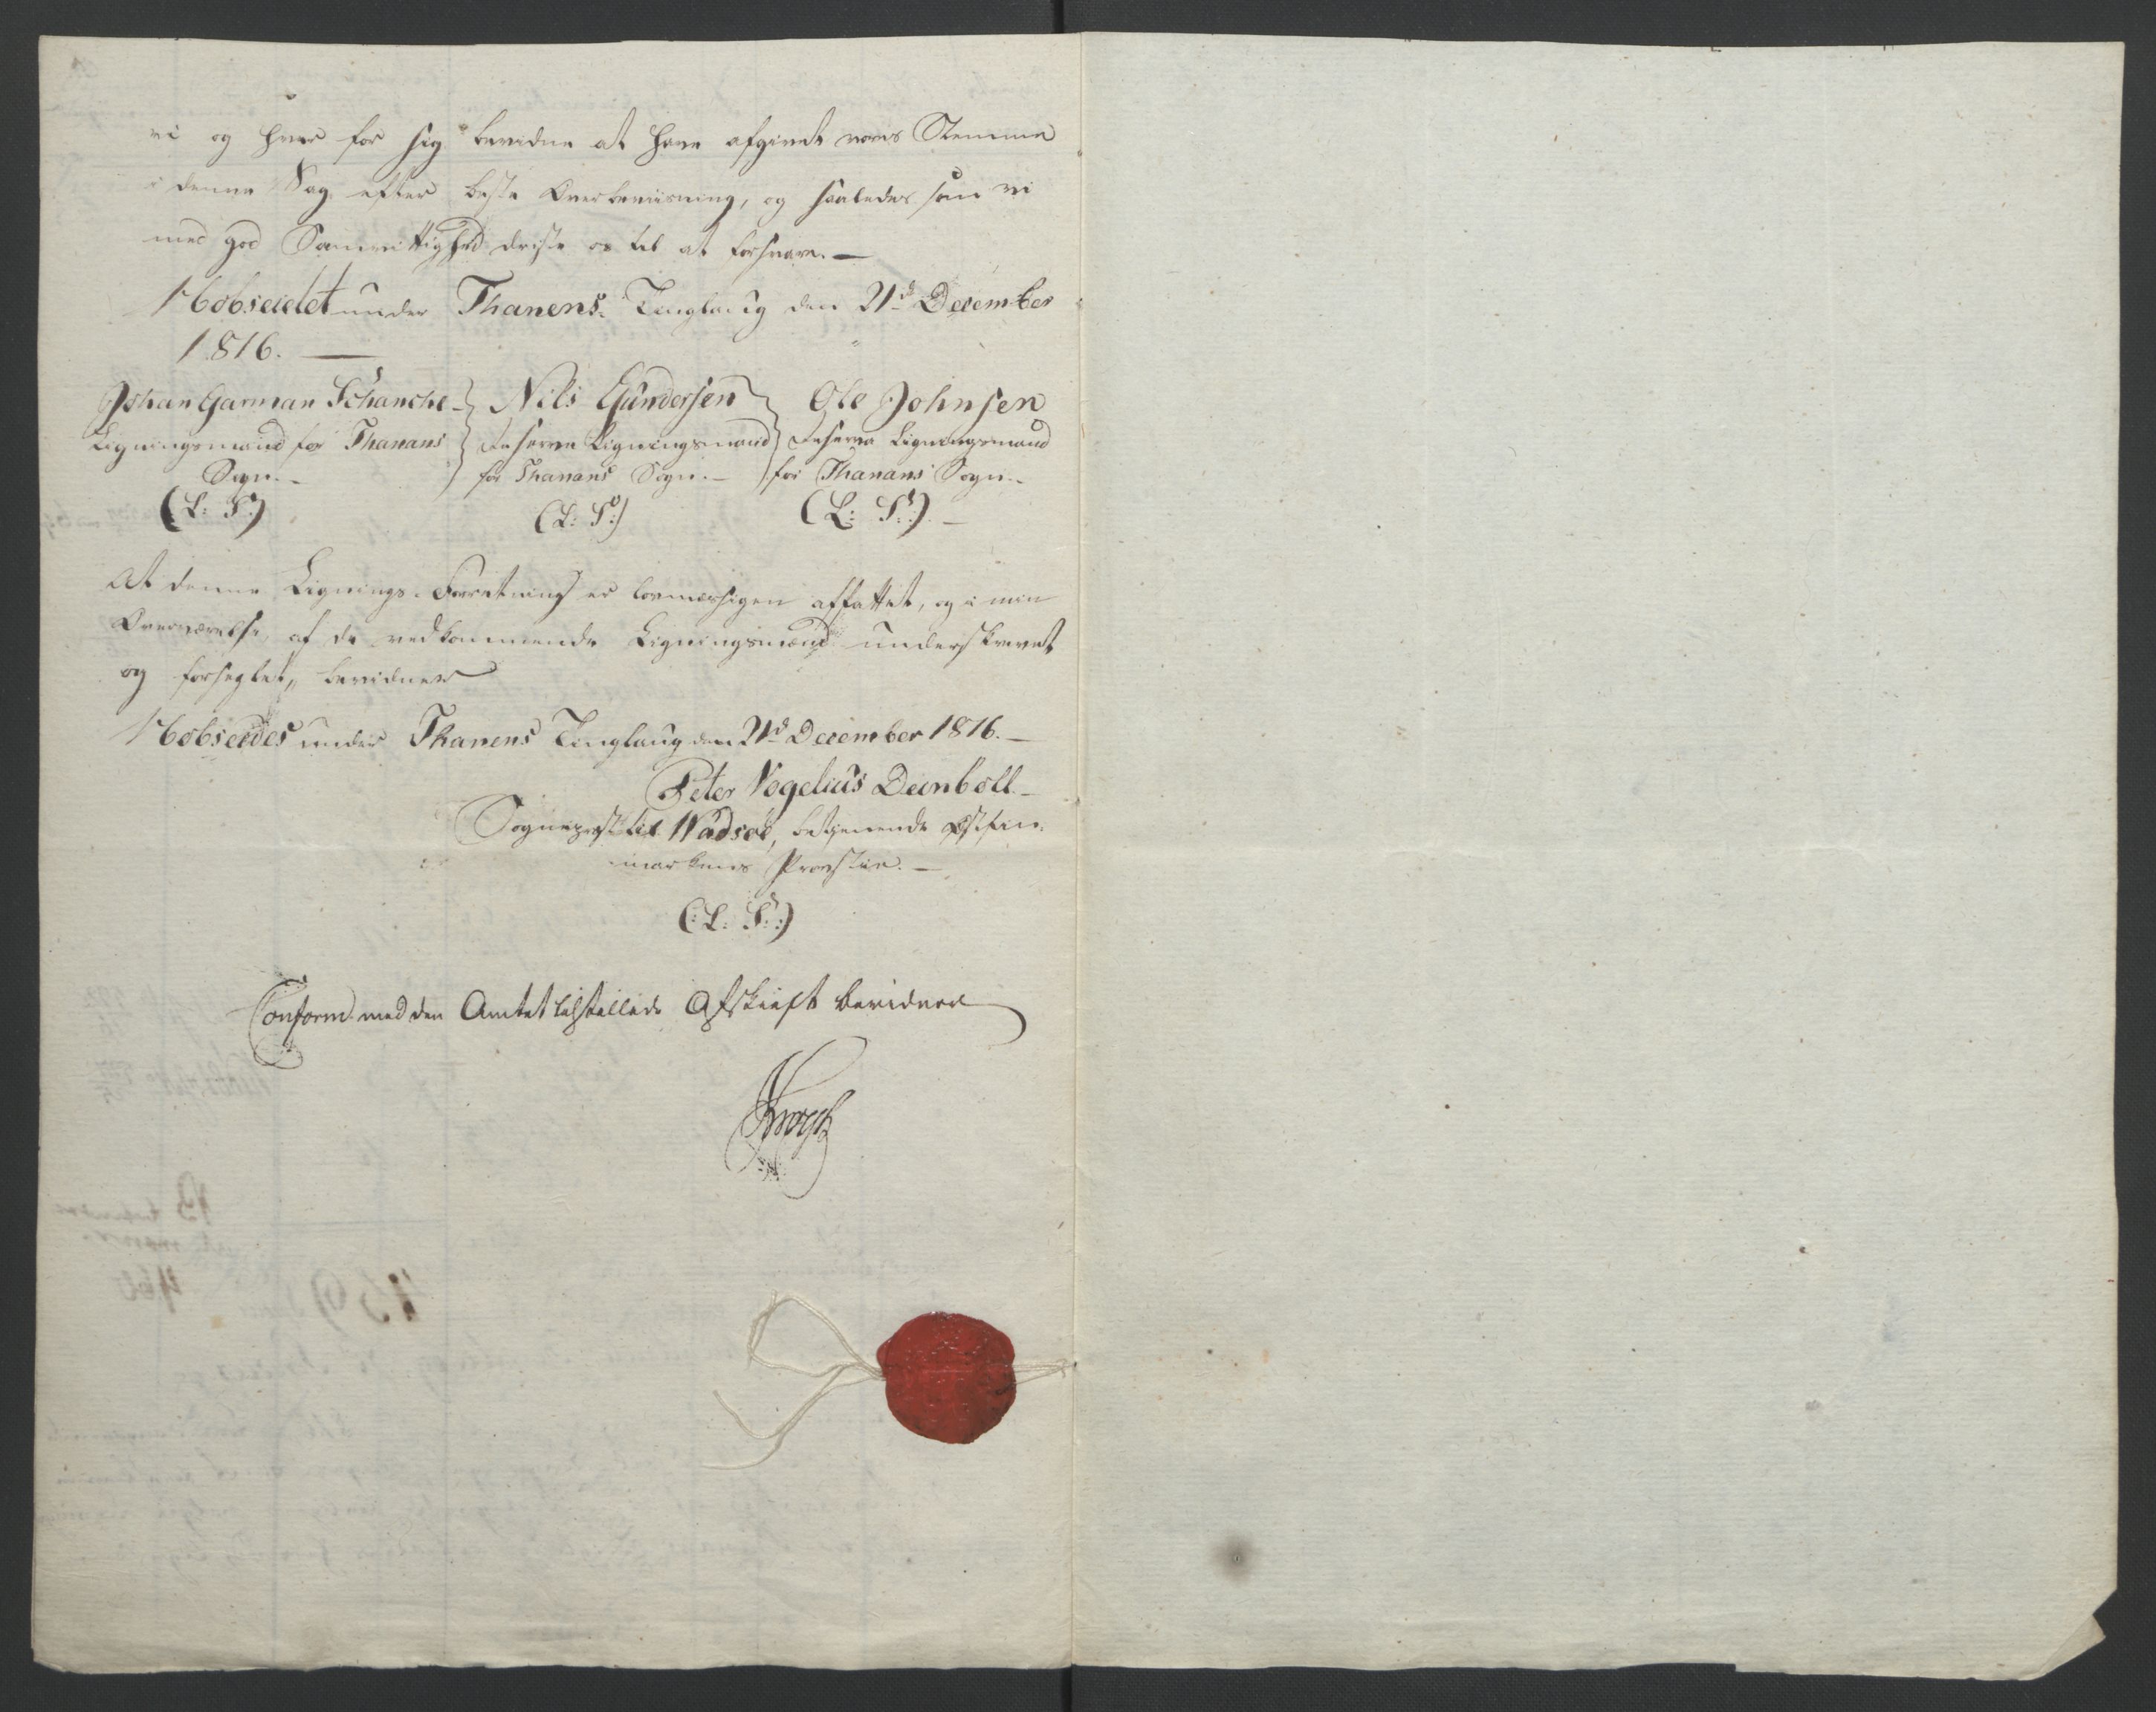 vi og hver for sig bevidne at have afgivet vores Stemme
i denne Sag efter beste Overbeviisning, og saaledes som vi
med god Samvittighed driste os til at forsvare. —
Hobseidet under Thanens Tinglaug den 21d December
1816. —
Johan Garman Schanche
Ligningsmand for Thanans
Sogn. -
(L: S:)
Nils Gundersen
Reserve Ligningsmand
for Thanans Sogn. -
(L: S:)
Ole Johnsen
Reserve Ligningsmand
for Thanans Sogn. -
(L: S:). -
At denne Lignings-Forretning er lovmæssigen affattet, og i min
Overværelse, af de vedkommende Ligningsmænd underskrevet
og forseglet, bevidner
Hobseides under Thanens Tinglaug den 21d December 1816. —
Peter Vogelius Deinboll. —
Sognepræst til Wadsøe, betjenende Østfin-
markens Provstie. —
(:L: S:)
Conform med den Amtet tilstillede Afskrift bevidner
Krogh